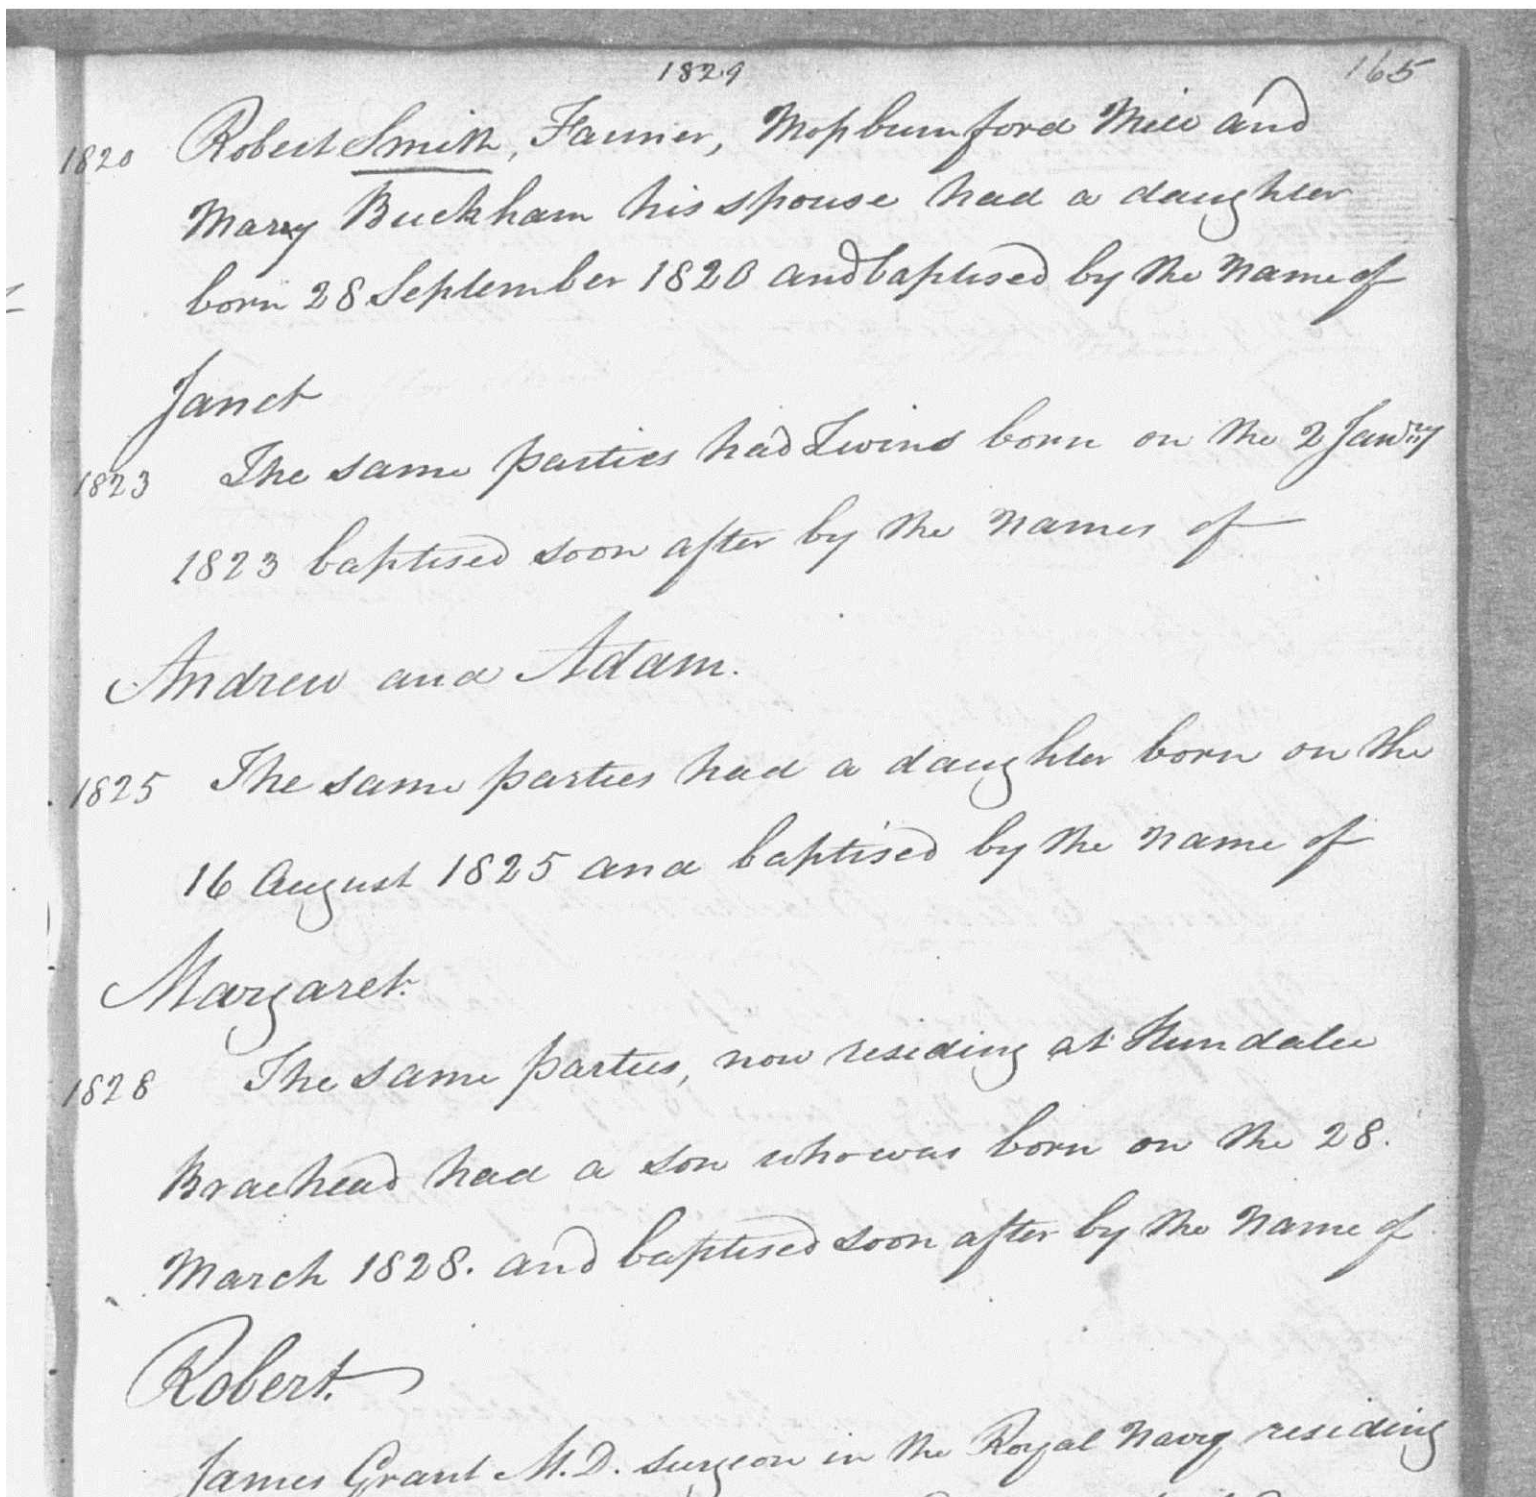 1829
165
1820 Robert Smith, Farmer, Mossburnford Mill and
Mary Buckham his spouse had a daughter
born 28 September 1820 and baptised by the Name of
Janet
1823 The same parties had Twins born on the 2 Janry
1823 baptised soon after by the Names of
Andrew and Adam.
1825 The same parties had a daughter born on the
16 August 1825 and baptised by the Name of
Margaret.
1828 The same parties, now residing at Hundalee
Braehead had a son who was born on the 28.
March 1828. and baptised soon after by the Name of
Robert.
James Grant M.D. surgeon in the Royal Navy residing